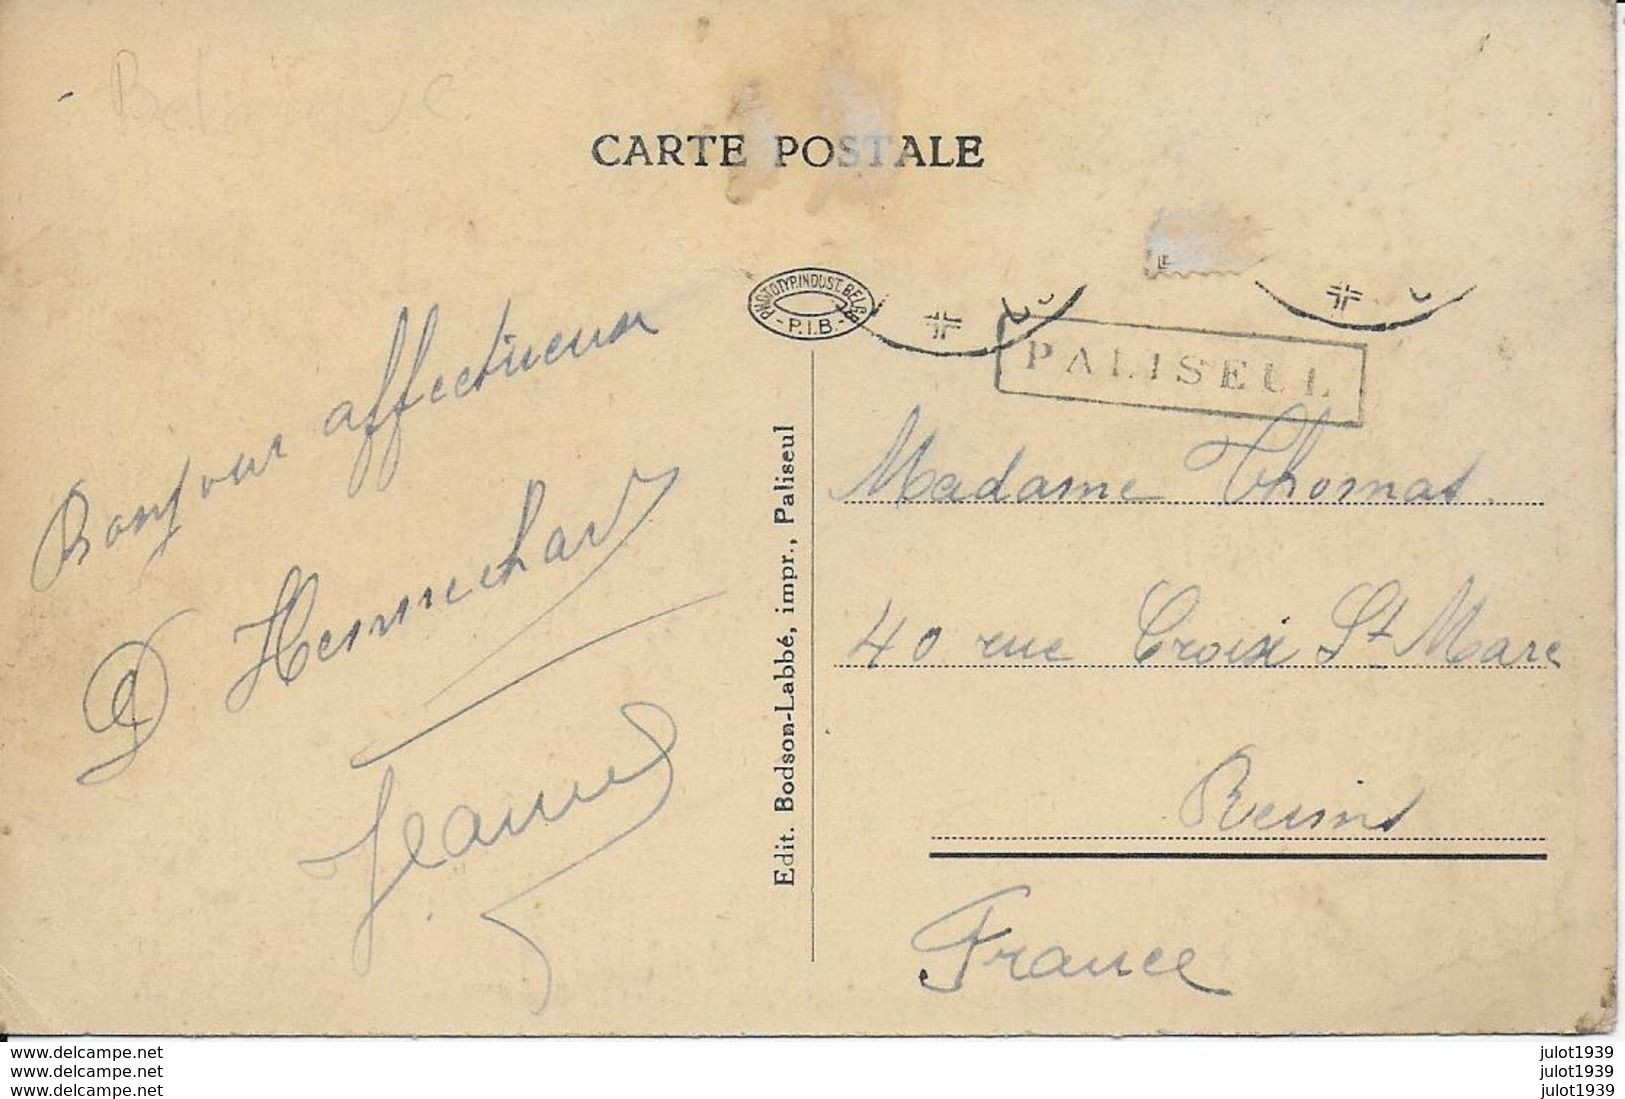 CARTE POSTALE
PHOTOTYP. INDUST. BELGE
- P.I.B. -
PALISEUL
Bonjour affectueux
Jeanne
Edit. Bodson-Labbé, impr., Paliseul
Madame Thomas
40 rue Croix St Marc
Reims
France
www.delcampe.net
www.delcampe.net
www.delcampe.net
julot1939
julot1939
julot1939